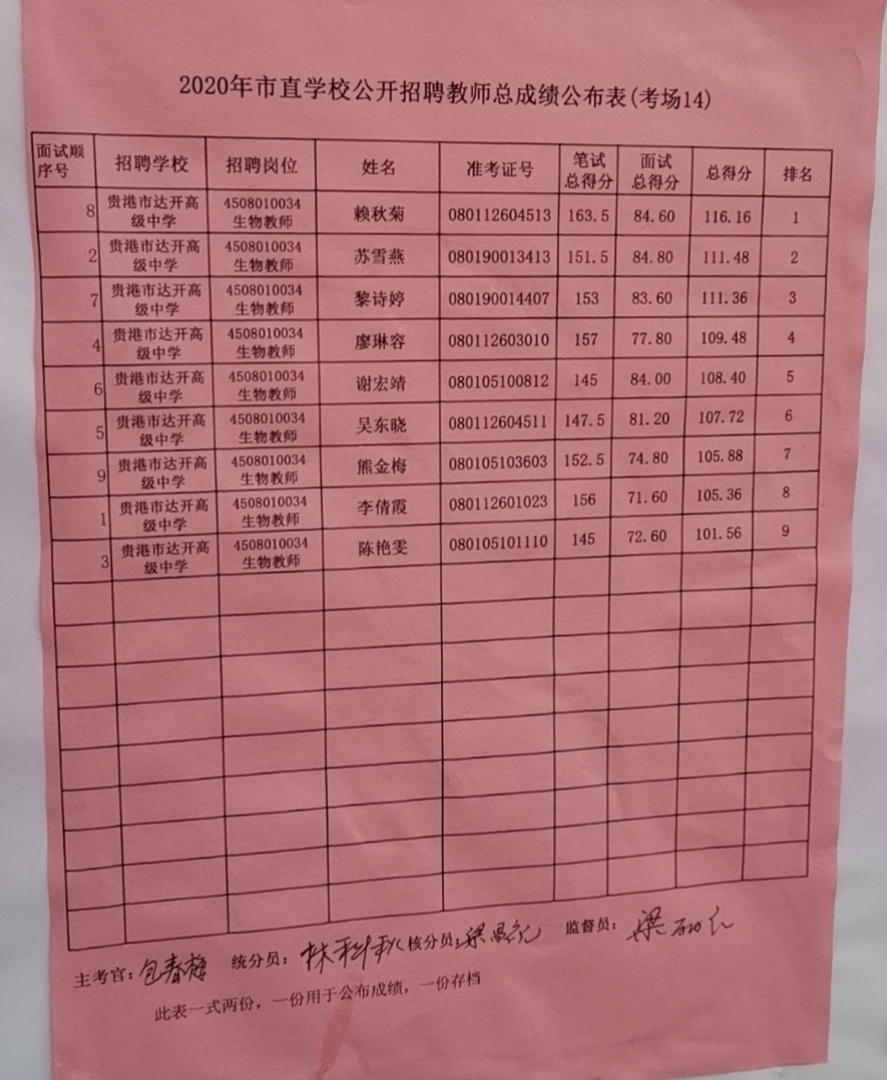 2020年市直学校公开招聘教师总成绩公布表(考场14)
面试顺序号 招聘学校 招聘岗位 姓名 准考证号 笔试总得分 面试总得分 总得分 排名
8 贵港市达开高级中学 4508010034生物教师 赖秋菊 080112604513 163.5 84.60 116.16 1
2 贵港市达开高级中学 4508010034生物教师 苏雪燕 080190013413 151.5 84.80 111.48 2
7 贵港市达开高级中学 4508010034生物教师 黎诗婷 080190014407 153 83.60 111.36 3
4 贵港市达开高级中学 4508010034生物教师 廖琳容 080112603010 157 77.80 109.48 4
6 贵港市达开高级中学 4508010034生物教师 谢宏靖 080105100812 145 84.00 108.40 5
5 贵港市达开高级中学 4508010034生物教师 吴东晓 080112604511 147.5 81.20 107.72 6
9 贵港市达开高级中学 4508010034生物教师 熊金梅 080105103603 152.5 74.80 105.88 7
1 贵港市达开高级中学 4508010034生物教师 李倩霞 080112601023 156 71.60 105.36 8
3 贵港市达开高级中学 4508010034生物教师 陈艳雯 080105101110 145 72.60 101.56 9
主考官：包春梅 统分员： 核分员： 监督员：
此表一式两份，一份用于公布成绩，一份存档